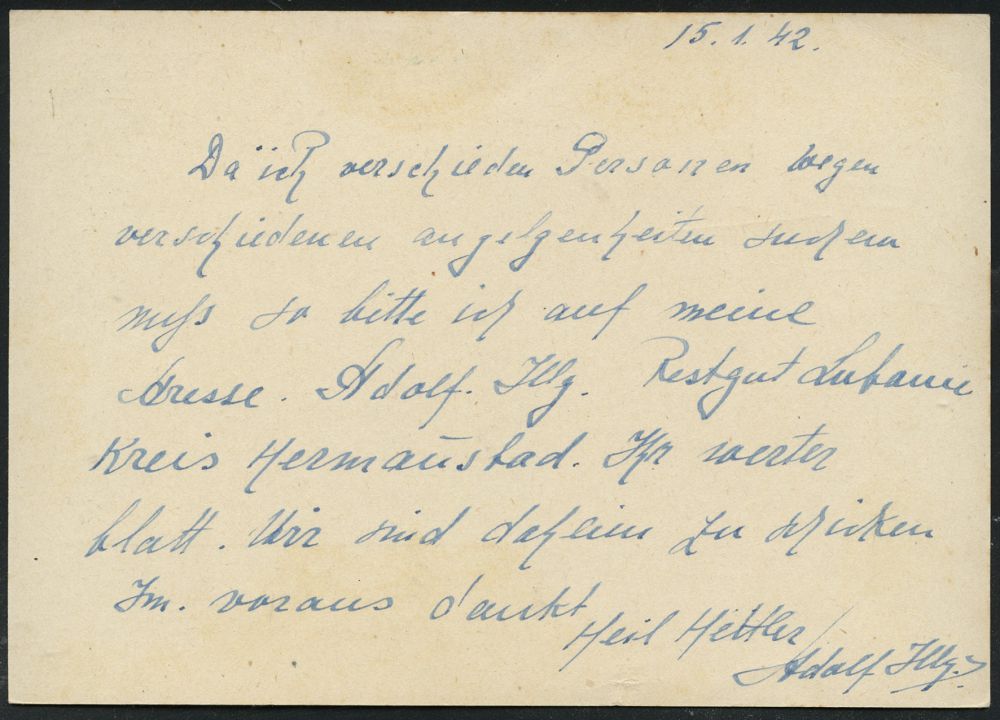 15.1.42.
Da ich verschieden Personen wegen
verschiedenen angelgenheiten suchem
muss so bitte ich auf meine
Adresse. Adolf. Illg. Restgut Lubanie
Kreis Hermansbad. Ihr werter
blatt. Wir sind daheim zu schicken
Im. voraus dankt
Heil Hettler
Adolf Illg.